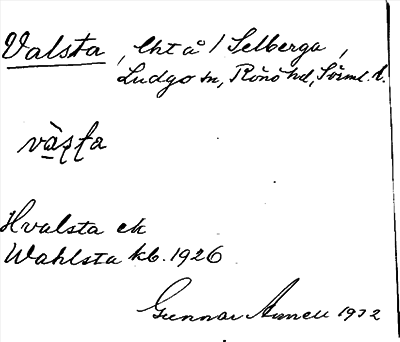 Valsta, lht å / Selberga,
Ludgo sn, Rönö hd, Sörml. l.
vàsta
Hvalsta ek
Wahlsta kb. 1926
Gunnar 1932